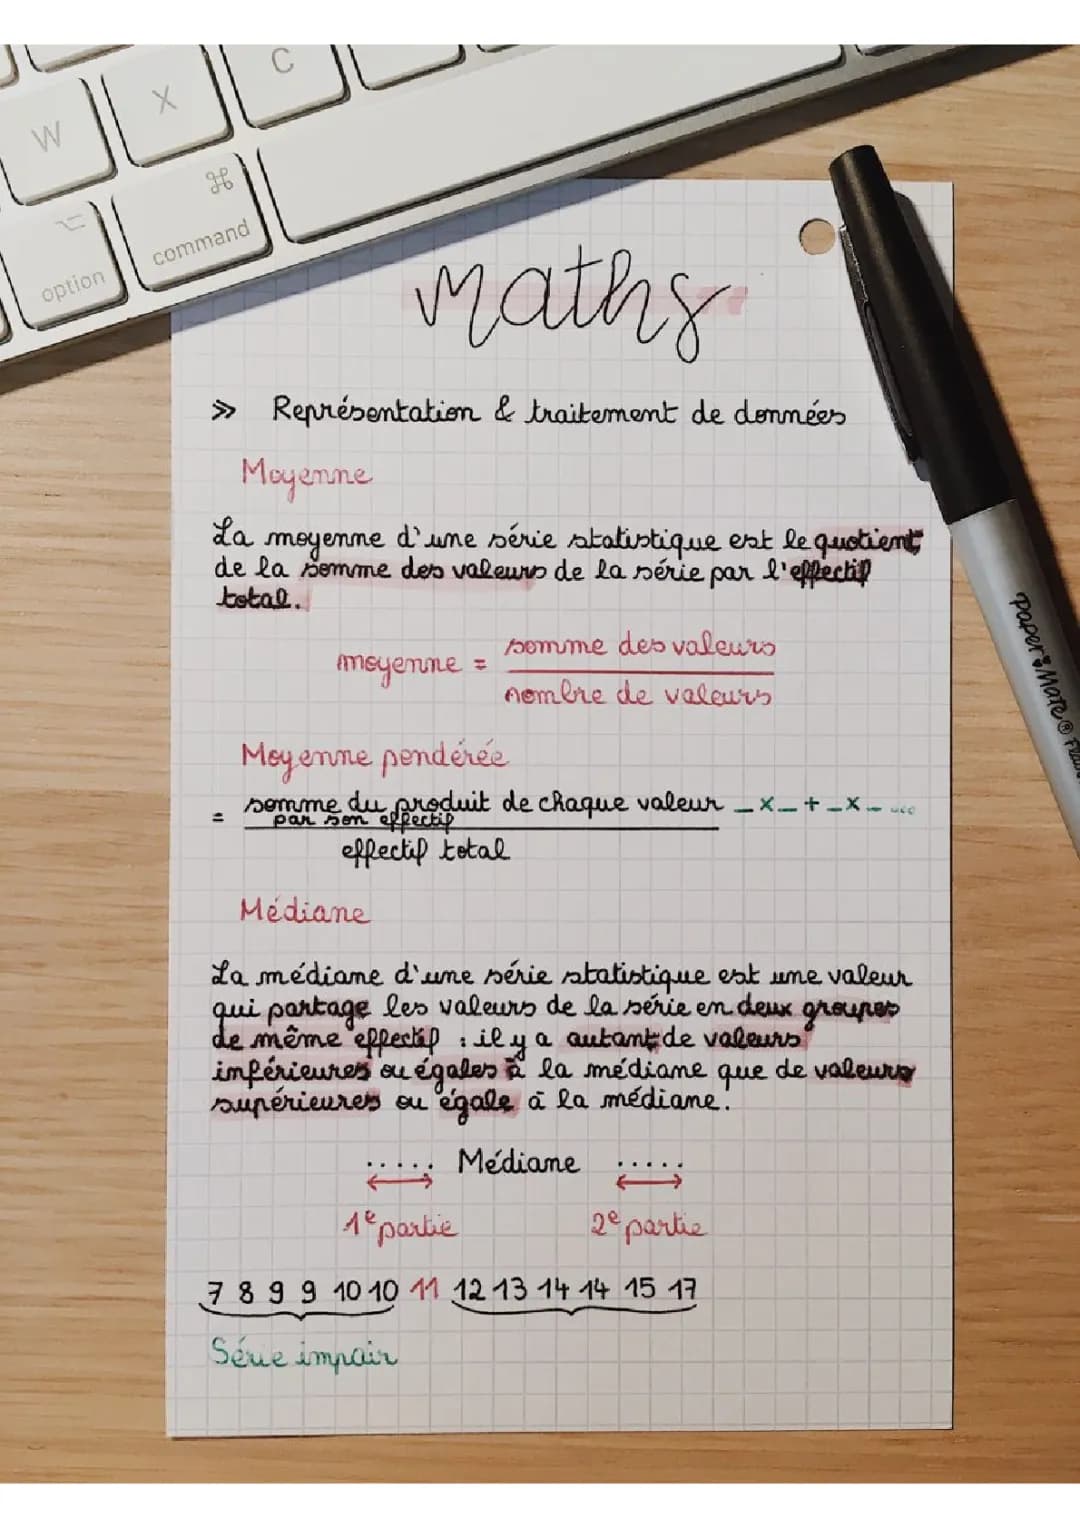 C
X
W
⌘
command
⌥
option
Maths
» Représentation & traitement de données
Moyenne
La moyenne d'une série statistique est le quotient
de la somme des valeurs de la série par l'effectif
total.
moyenne = somme des valeurs
nombre de valeurs
Moyenne pondérée
= somme du produit de chaque valeur _x_+_x_ ...
par son effectif
effectif total
Médiane
La médiane d'une série statistique est une valeur
qui partage les valeurs de la série en deux groupes
de même effectif : il y a autant de valeurs
inférieures ou égales à la médiane que de valeurs
supérieures ou égale à la médiane.
..... Médiane .....
1e partie 2e partie
7 8 9 9 10 10 11 12 13 14 14 15 17
Série impair
Paper Mate®